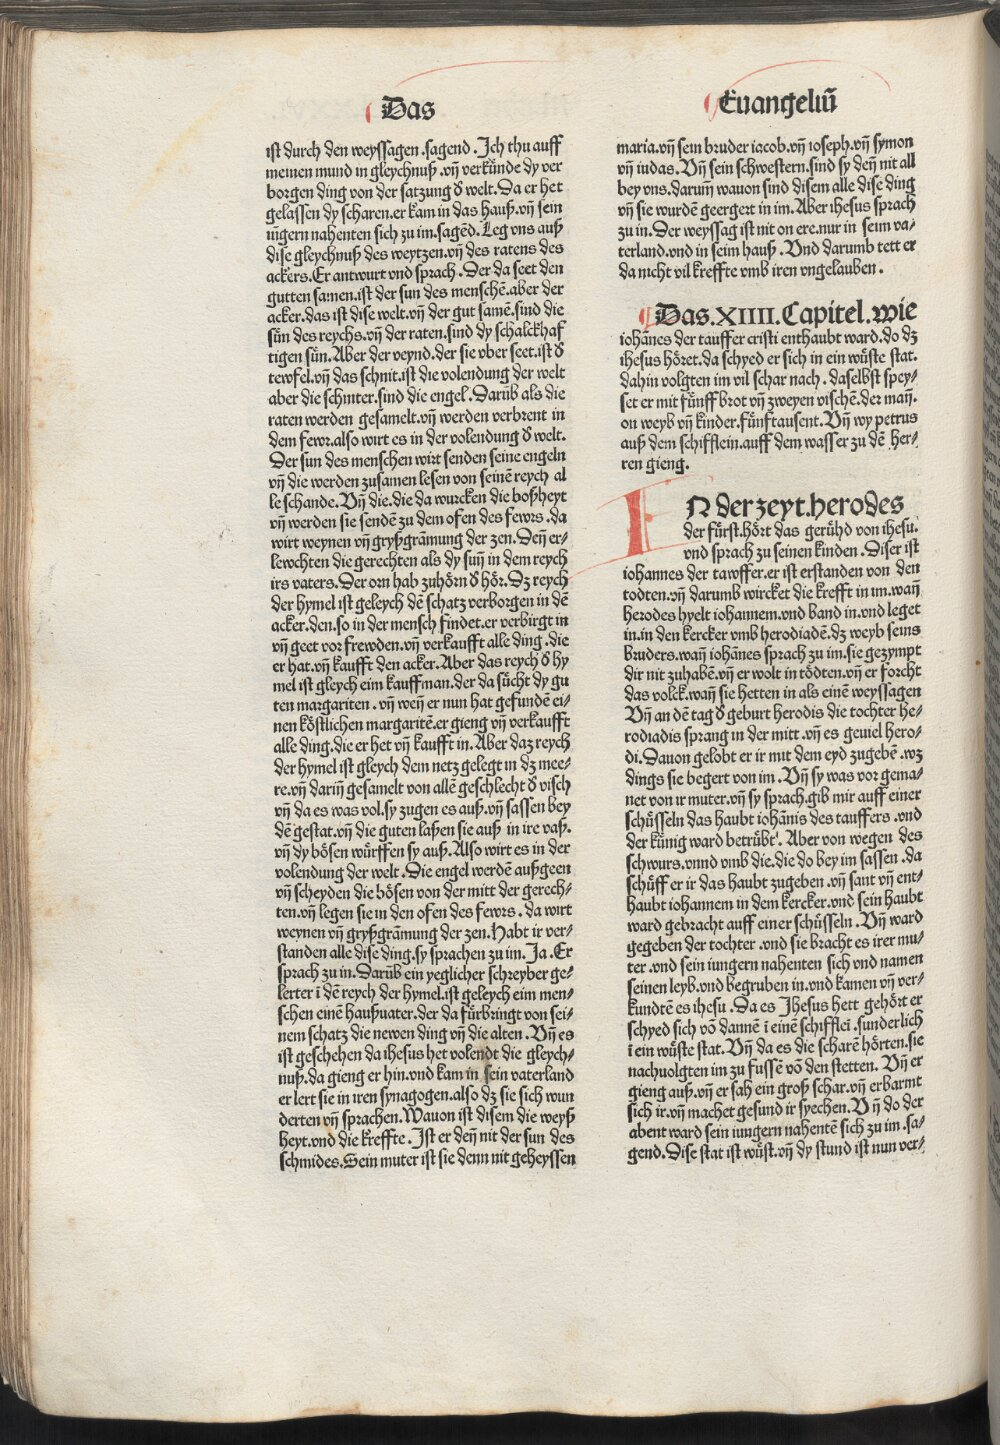 Das
Euangeliū
ist durch den weyssagen .sagend . Ich thu auff
meinen mund in gleychnuß .vn̄ verkünde dy ver
borgen ding von der satzung d̕ welt. Da er het
gelassen dy scharen.er kam in das hauß.vn̄ sein
iūgern nahenten sich zu im.sagēd. Leg vns auß
dise gleychnuß des weytzen.vn̄ des ratens des
ackers. Er antwurt vnd sprach . Der da seet den
gutten samen.ist der sun des menschē.aber der
acker.das ist dise welt.vn̄ der gut samē.sind die
sün des reychs.vn̄ der raten.sind dy schalckhaf
tigen sün. Aber der veynd.der sie vber seet.ist d̕
tewfel.vn̄ das schnit.ist die volendung der welt
aber die schniter.sind die engel . Darūb als die
raten werden gesamelt.vn̄ werden verbrent in
dem fewr.also wirt es in der volendung d̕ welt.
Der sun des menschen wirt senden seine engeln
vn̄ die werden zusamen lesen von seinē reych al
le schande. Vn̄ die.die da wurcken die boßheyt
vn̄ werden sie sendē zu dem ofen des fewrs .da
wirt weynen vn̄ gryßgrāmung der zen. Den̄ er⸗
lewchten die gerechten als dy sun̄ in dem reych
irs vaters. Der orn hab zuhörn d̕ hör. Dz reych
der hymel ist geleych dē schatz verborgen in dē
acker.den.so in der mensch findet.er verbirgt in
vn̄ geet vor frewden.vn̄ verkaufft alle ding .die
er hat.vn̄ kaufft den acker. Aber das reych d̕ hy
mel ist gleych eim kauffman.der da sücht dy gu
ten margariten . vn̄ wen̄ er nun hat gefundē ei⸗
nen köstlichen margaritē.er gieng vn̄ verkaufft
alle ding.die er het vn̄ kaufft in. Aber daz reych
der hymel ist gleych dem netz gelegt in dz mee⸗
re.vn̄ darin̄ gesamelt von allē geschlecht d̕ visch
vn̄ da es was vol.sy zugen es auß.vn̄ sassen bey
dē gestat.vn̄ die guten laßen sie auß in ire vaß.
vn̄ dy bösen würffen sy auß. Also wirt es in der
volendung der welt . Die engel werdē außgeen
vn̄ scheyden die bösen von der mitt der gerech⸗
ten.vn̄ legen sie in den ofen des fewrs . da wirt
weynen vn̄ gryßgrāmung der zen. Habt ir ver⸗
standen alle dise ding.sy sprachen zu im. Ja . Er
sprach zu in. Darūb ein yeglicher schreyber ge⸗
lerter ī dē reych der hymel.ist geleych eim men⸗
schen einē haußuater.der da fürbringt von sei⸗
nem schatz die newen ding vn̄ die alten . Vn̄ es
ist geschehen da ihesus het volendt die gleych⸗
nuß.da gieng er hin.vnd kam in sein vaterland
er lert sie in iren synagogen.also dz sie sich wun
derten vn̄ sprachen. Wauon ist disem die weyß
heyt.vnd die kreffte . Ist er den̄ nit der sun des
schmides. Sein muter ist sie denn nit geheyssen
maria.vn̄ sein bruder iacob.vn̄ ioseph.vn̄ symon
vn̄ iudas. Vn̄ sein schwestern.sind sy den̄ nit all
bey vns.darum̄ wauon sind disem alle dise ding
vn̄ sie wurdē geergert in im. Aber ihesus sprach
zu in. Der weyssag ist nit on ere.nur in seim va⸗
terland.vnd in seim hauß . Vnd darumb tett er
da nicht vil kreffte vmb iren vngelauben .
Das.XIIII.Capitel.wie
iohānes der tauffer cristi enthaubt ward.do dz
ihesus höret.da schyed er sich in ein wüste stat.
dahin volgten im vil schar nach . daselbst spey⸗
set er mit fünff brot vn̄ zweyen vischē.der man̄.
on weyb vn̄ kinder.fünftausent. Vn̄ wy petrus
auß dem schifflein.auff dem wasser zu dē her⸗
ren gieng.
IN der zeyt.herodes
der fürst.hört das gerühd von ihesu.
vnd sprach zu seinen kinden . Diser ist
iohannes der tawffer.er ist erstanden von den
todten.vn̄ darumb wircket die krefft in im.wan̄
herodes hyelt iohannem.vnd band in.vnd leget
in.in den kercker vmb herodiadē.dz weyb seins
bruders.wan̄ iohānes sprach zu im.sie gezympt
dir nit zuhabē.vn̄ er wolt in tödten.vn̄ er forcht
das volck.wan̄ sie hetten in als einē weyssagen
Vn̄ an dē tag d̕ geburt herodis die tochter he⸗
rodiadis sprang in der mitt .vn̄ es geuiel hero⸗
di. Dauon gelobt er ir mit dem eyd zugebē .wz
dings sie begert von im . Vn̄ sy was vor gema⸗
net von ir muter.vn̄ sy sprach.gib mir auff einer
schüsseln das haubt iohānis des tauffers .vnd
der künig ward betrübt. Aber von wegen des
schwurs.vnnd vmb die.die do bey im sassen .da
schüff er ir das haubt zugeben .vn̄ sant vn̄ ent⸗
haubt iohannem in dem kercker.vnd sein haubt
ward gebracht auff einer schüsseln . Vn̄ ward
gegeben der tochter .vnd sie bracht es irer mu⸗
ter .vnd sein iungern nahenten sich vnd namen
seinen leyb.vnd begruben in.vnd kamen vn̄ ver⸗
kundtē es ihesu . Da es Ihesus hett gehört er
schyed sich vō dannē ī einē schifflei .sunderlich
ī ein wüste stat. Vn̄ da es die scharē hörten.sie
nachuolgten im zu fussē vō den stetten. Vn̄ er
gieng auß.vn̄ er sah ein groß schar.vn̄ erbarmt
sich ir.vn̄ machet gesund ir syechen. Vn̄ do der
abent ward sein iungern nahentē sich zu im .sa⸗
gend. Dise stat ist wüst.vn̄ dy stund ist nun ver⸗